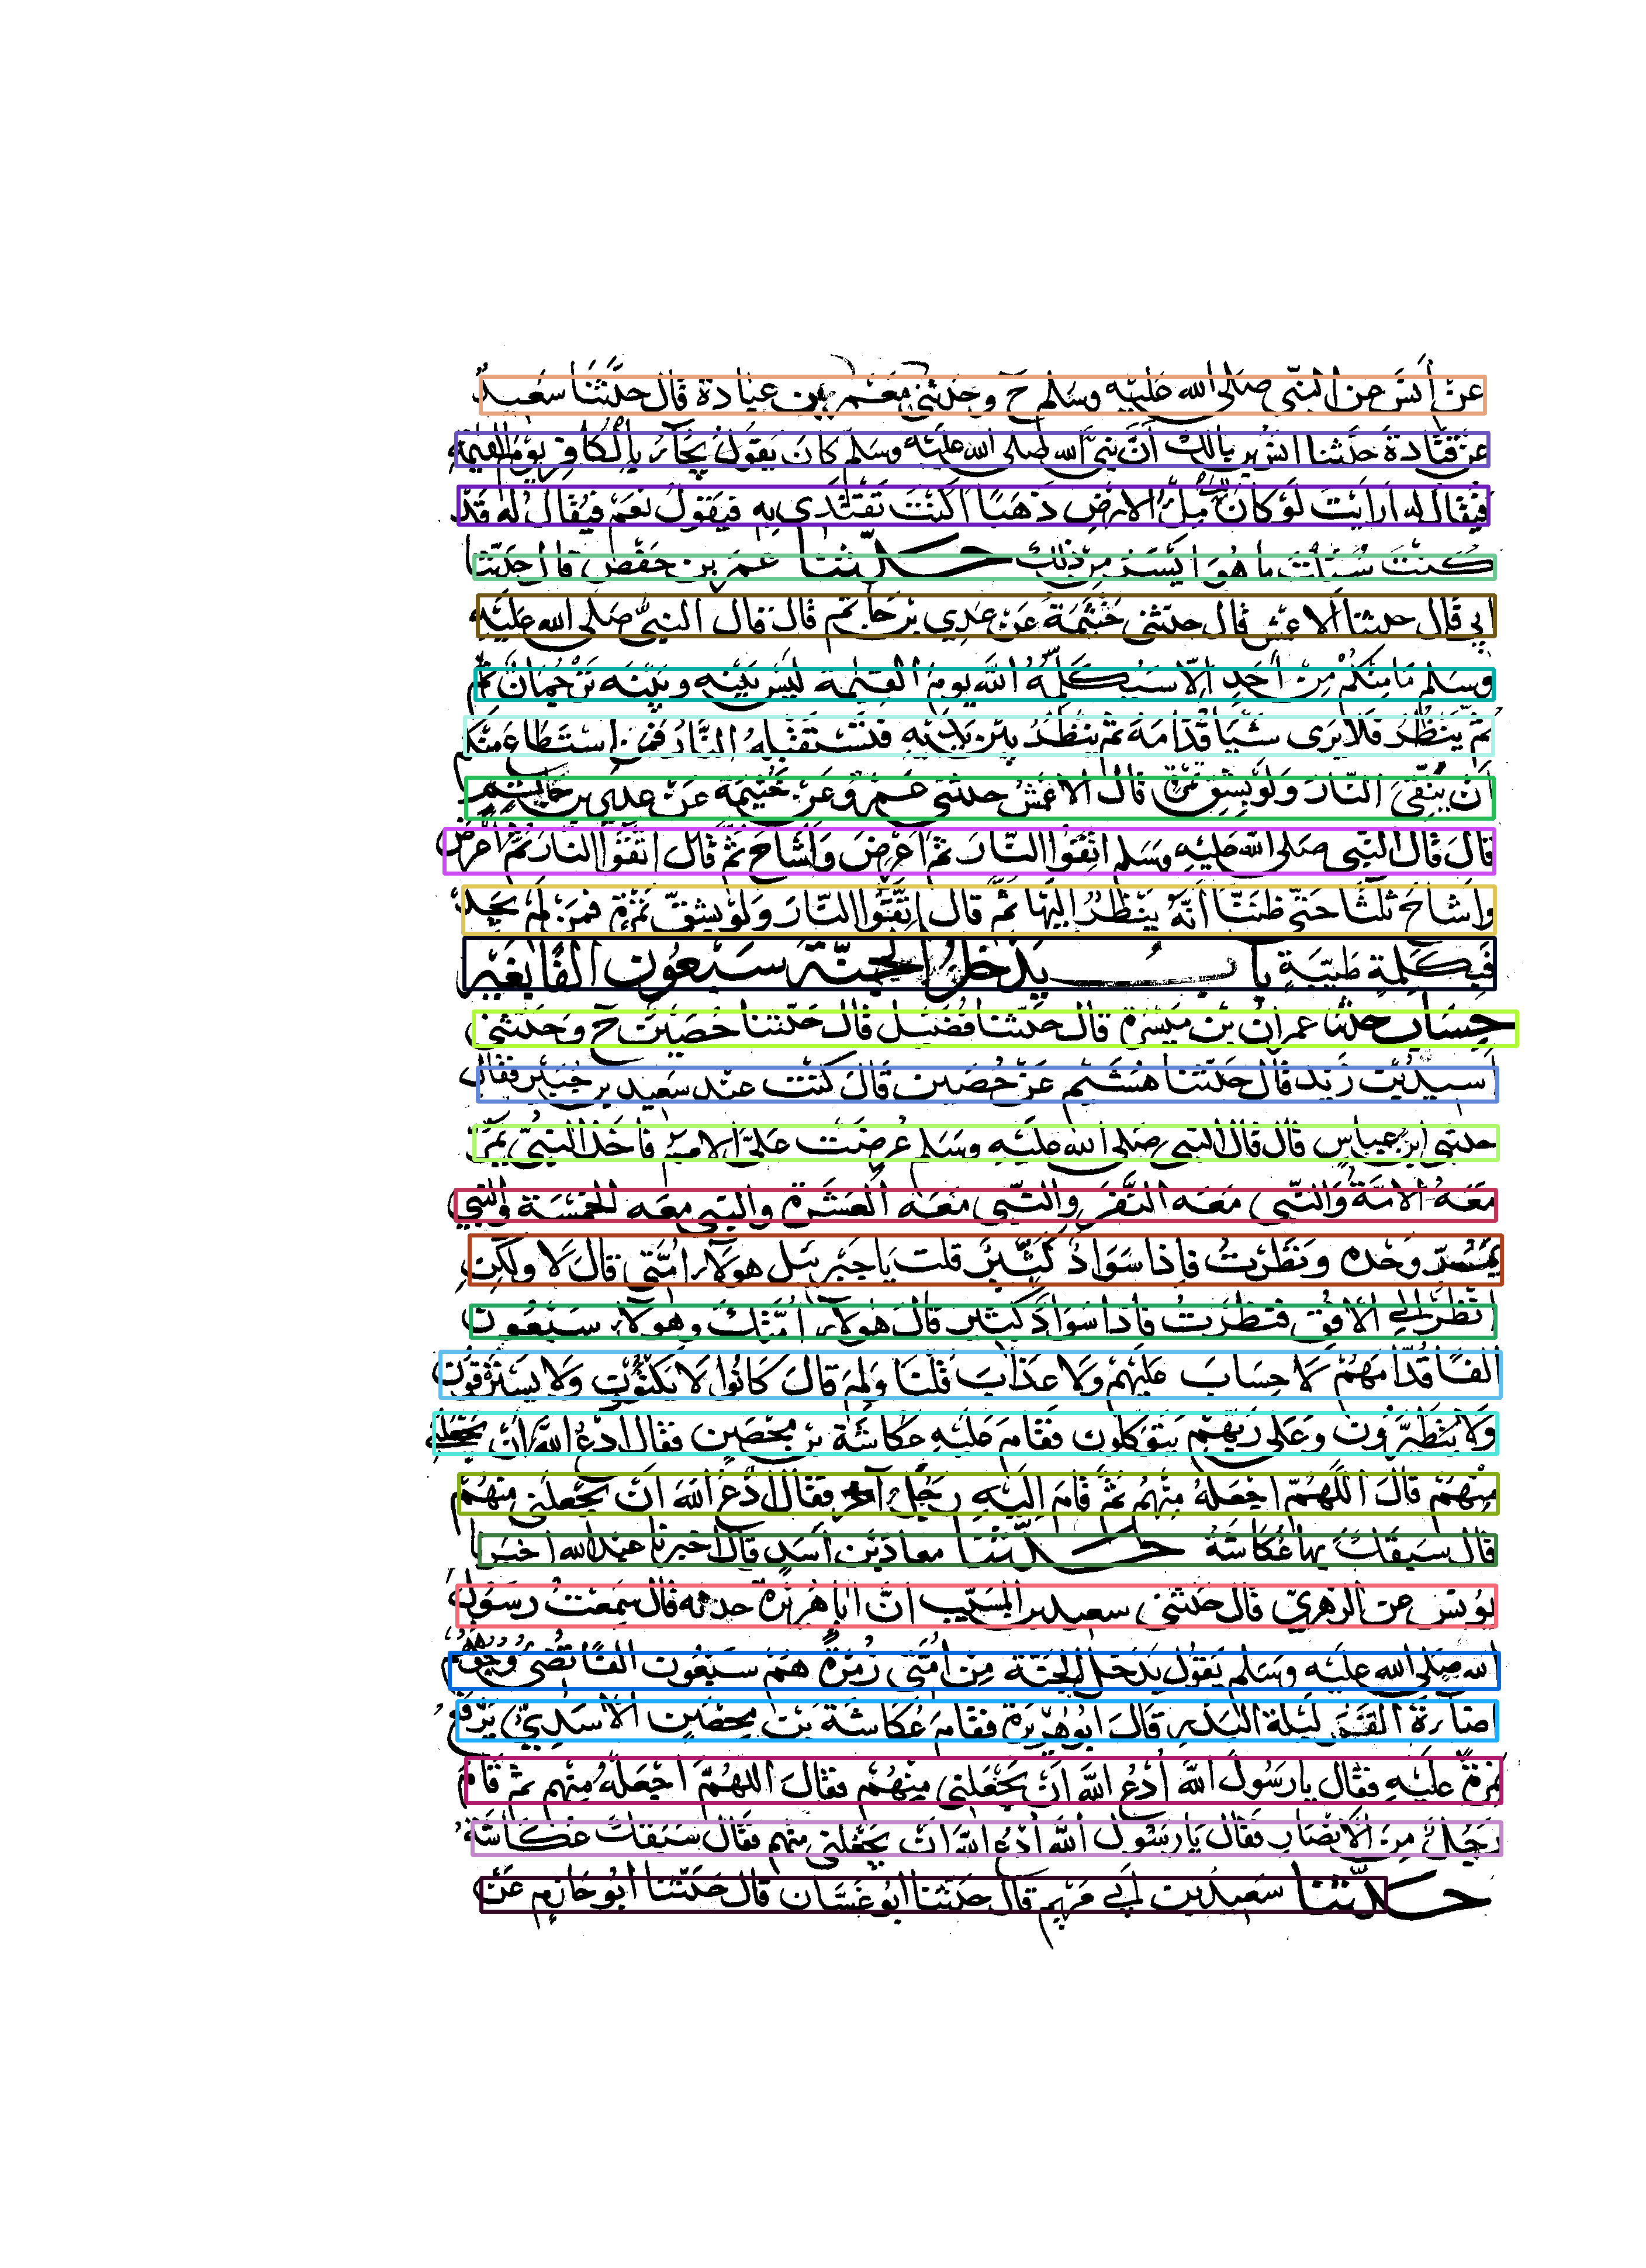 عن أنس عن النبي صلى الله عليه وسلم ح وحدثني معمر بن عبادة قال حدثنا سعيد
عن قتادة حدثنا انس بن مالك أن نبي الله صلى الله عليه وسلم كان يقول يجاء بالكافر يوم القيمة
فيقال له ارايت لو كان ملء الارض ذهبا اكنت تفتدى به فيقول نعم فيقال له قد
كنت سئلت ما هو ايسر من ذلك حدثنا عمر بن حفص قال حدثنا
ابي قال حدثنا الاعمش قال حدثني خيثمة عن عدي بن حاتم قال قال النبي صلى الله عليه
وسلم ما منكم من أحد الا سيكلمه الله يوم القيمة ليس بينه وبينه ترجمان ثم
ثم ينظر فلا يرى شيا قدامه ثم ينظر بين يديه فتستقبله النار فمن استطاع منكم
أن يتقي النار ولو بشق تمرة قال الاعمش حدثني عمرو عن خيثمة عن عدي بن حاتم
قال قال النبي صلى الله عليه وسلم اتقوا النار ثم اعرض واشاح ثم قال اتقوا النار ثم اعرض
واشاح ثلثا حتى ظننا أنه ينظر اليها ثم قال اتقوا النار ولو بشق تمرة فمن لم يجد
فبكلمة طيبة باب يدخل الجنة سبعون الفا بغير
حساب حدثنا عمران بن ميسرة قال حدثنا فضيل قال حدثنا حصين ح وحدثني
اسيد بن زيد قال حدثنا هشيم عن حصين قال كنت عند سعيد بن جبير فقال
حدثني ابن عباس قال قال النبي صلى الله عليه وسلم عرضت علي الامم فاخذ النبي يمر
معه الامة والنبي معه النفر والنبي معه العشرة والنبي معه الخمسة والنبي
يمر وحده ونظرت فاذا سواد كثير قلت يا جبريل هولاء امتي قال لا ولكن
انظر الي الافق فنظرت فاذا سواد كثير قال هولاء امتك وهولاء سبعون
الفا قدامهم لا حساب عليهم ولا عذاب قلنا ولم قال كانوا لا يكتوون ولا يسترقون
ولا يتطيرون وعلى ربهم يتوكلون فقام عليه عكاشة بن محصن فقال ادع الله ان يجعلني
منهم قال اللهم اجعله منهم ثم قام اليه رجل آخر فقال ادع الله ان يجعلني منهم
قال سبقك بها عكاشة حدثنا معاذ بن اسد قال اخبرنا عبد الله اخبرنا
يونس عن الزهري قال حدثني سعيد بن المسيب ان ابا هريرة حدثه قال سمعت رسول
الله صلى الله عليه وسلم يقول يدخل الجنة من امتي زمرة هم سبعون الفا تضي وجوههم
اضاءة القمر ليلة البدر قال ابو هريرة فقام عكاشة بن محصن الاسدي يرفع
نمرة عليه فقال يا رسول الله ادع الله ان يجعلني منهم فقال اللهم اجعله منهم ثم قام
رجل من الانصار فقال يا رسول الله ادع الله ان يجعلني منهم فقال سبقك عكاشة
حدثنا سعيد بن ابي مريم قال حدثنا ابو غسان قال حدثنا ابو حازم عن